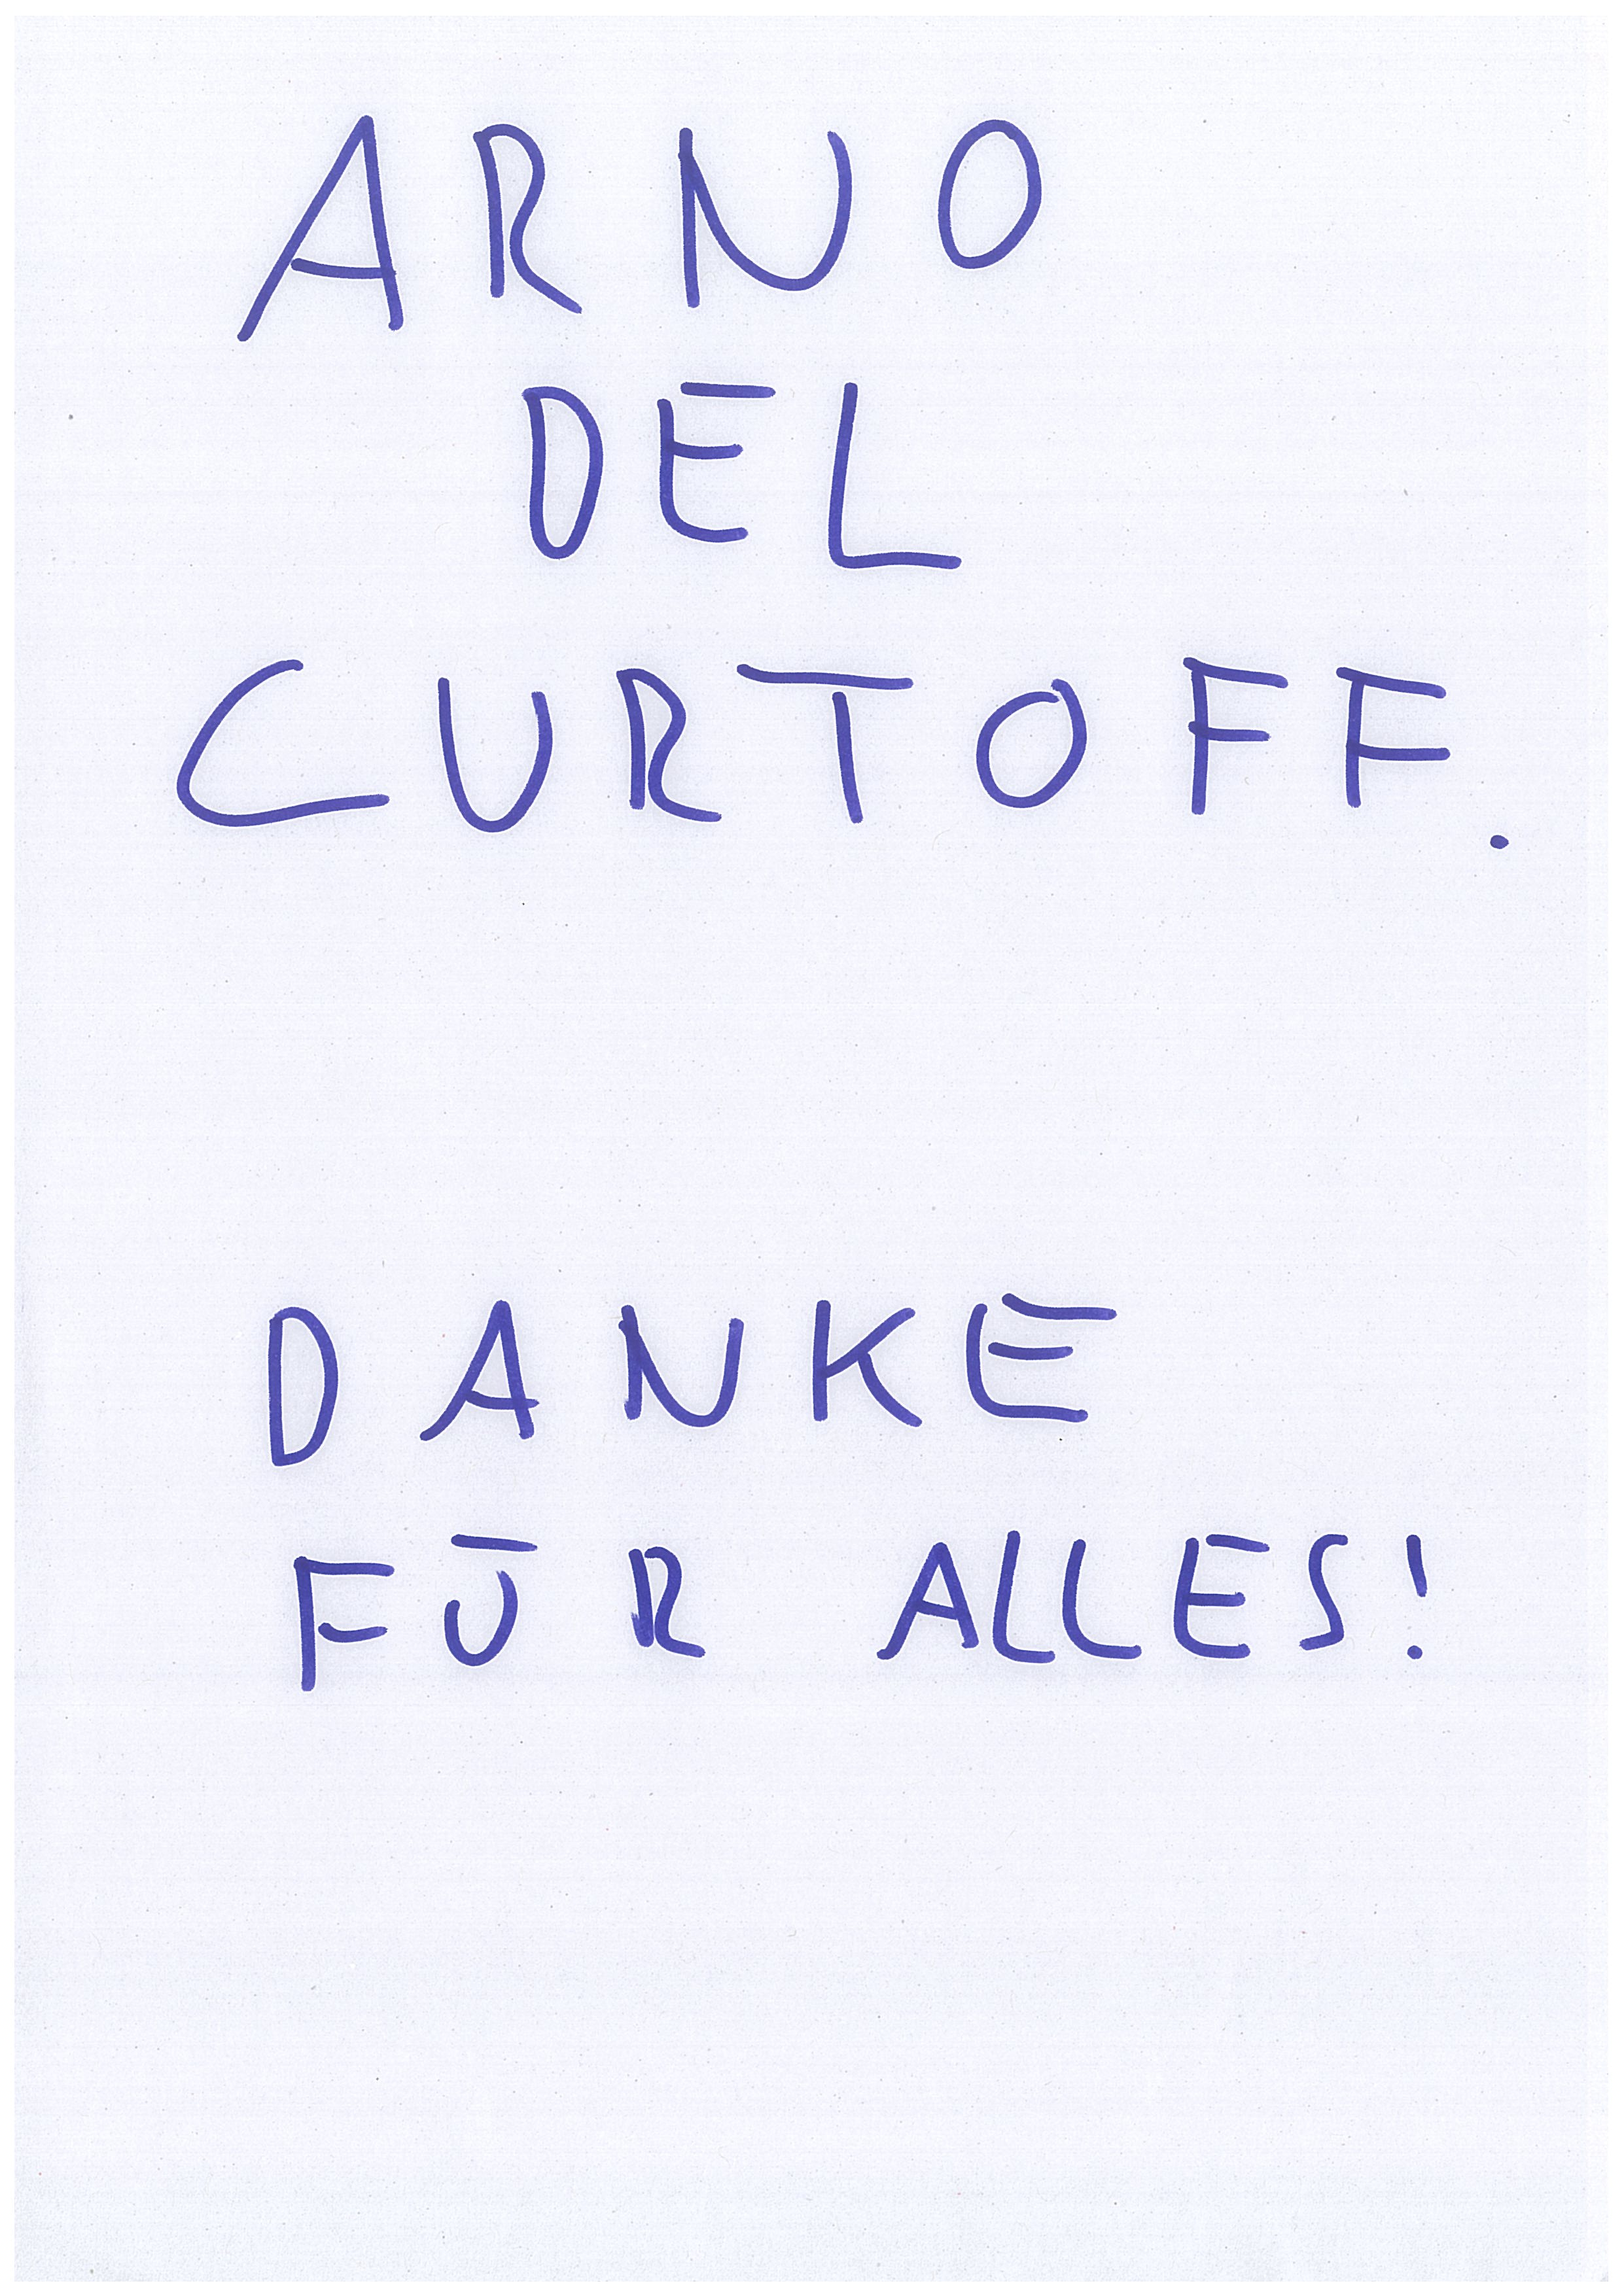 ARNO
DEL
CURTOFF.
DANKE
FŪR ALLES!